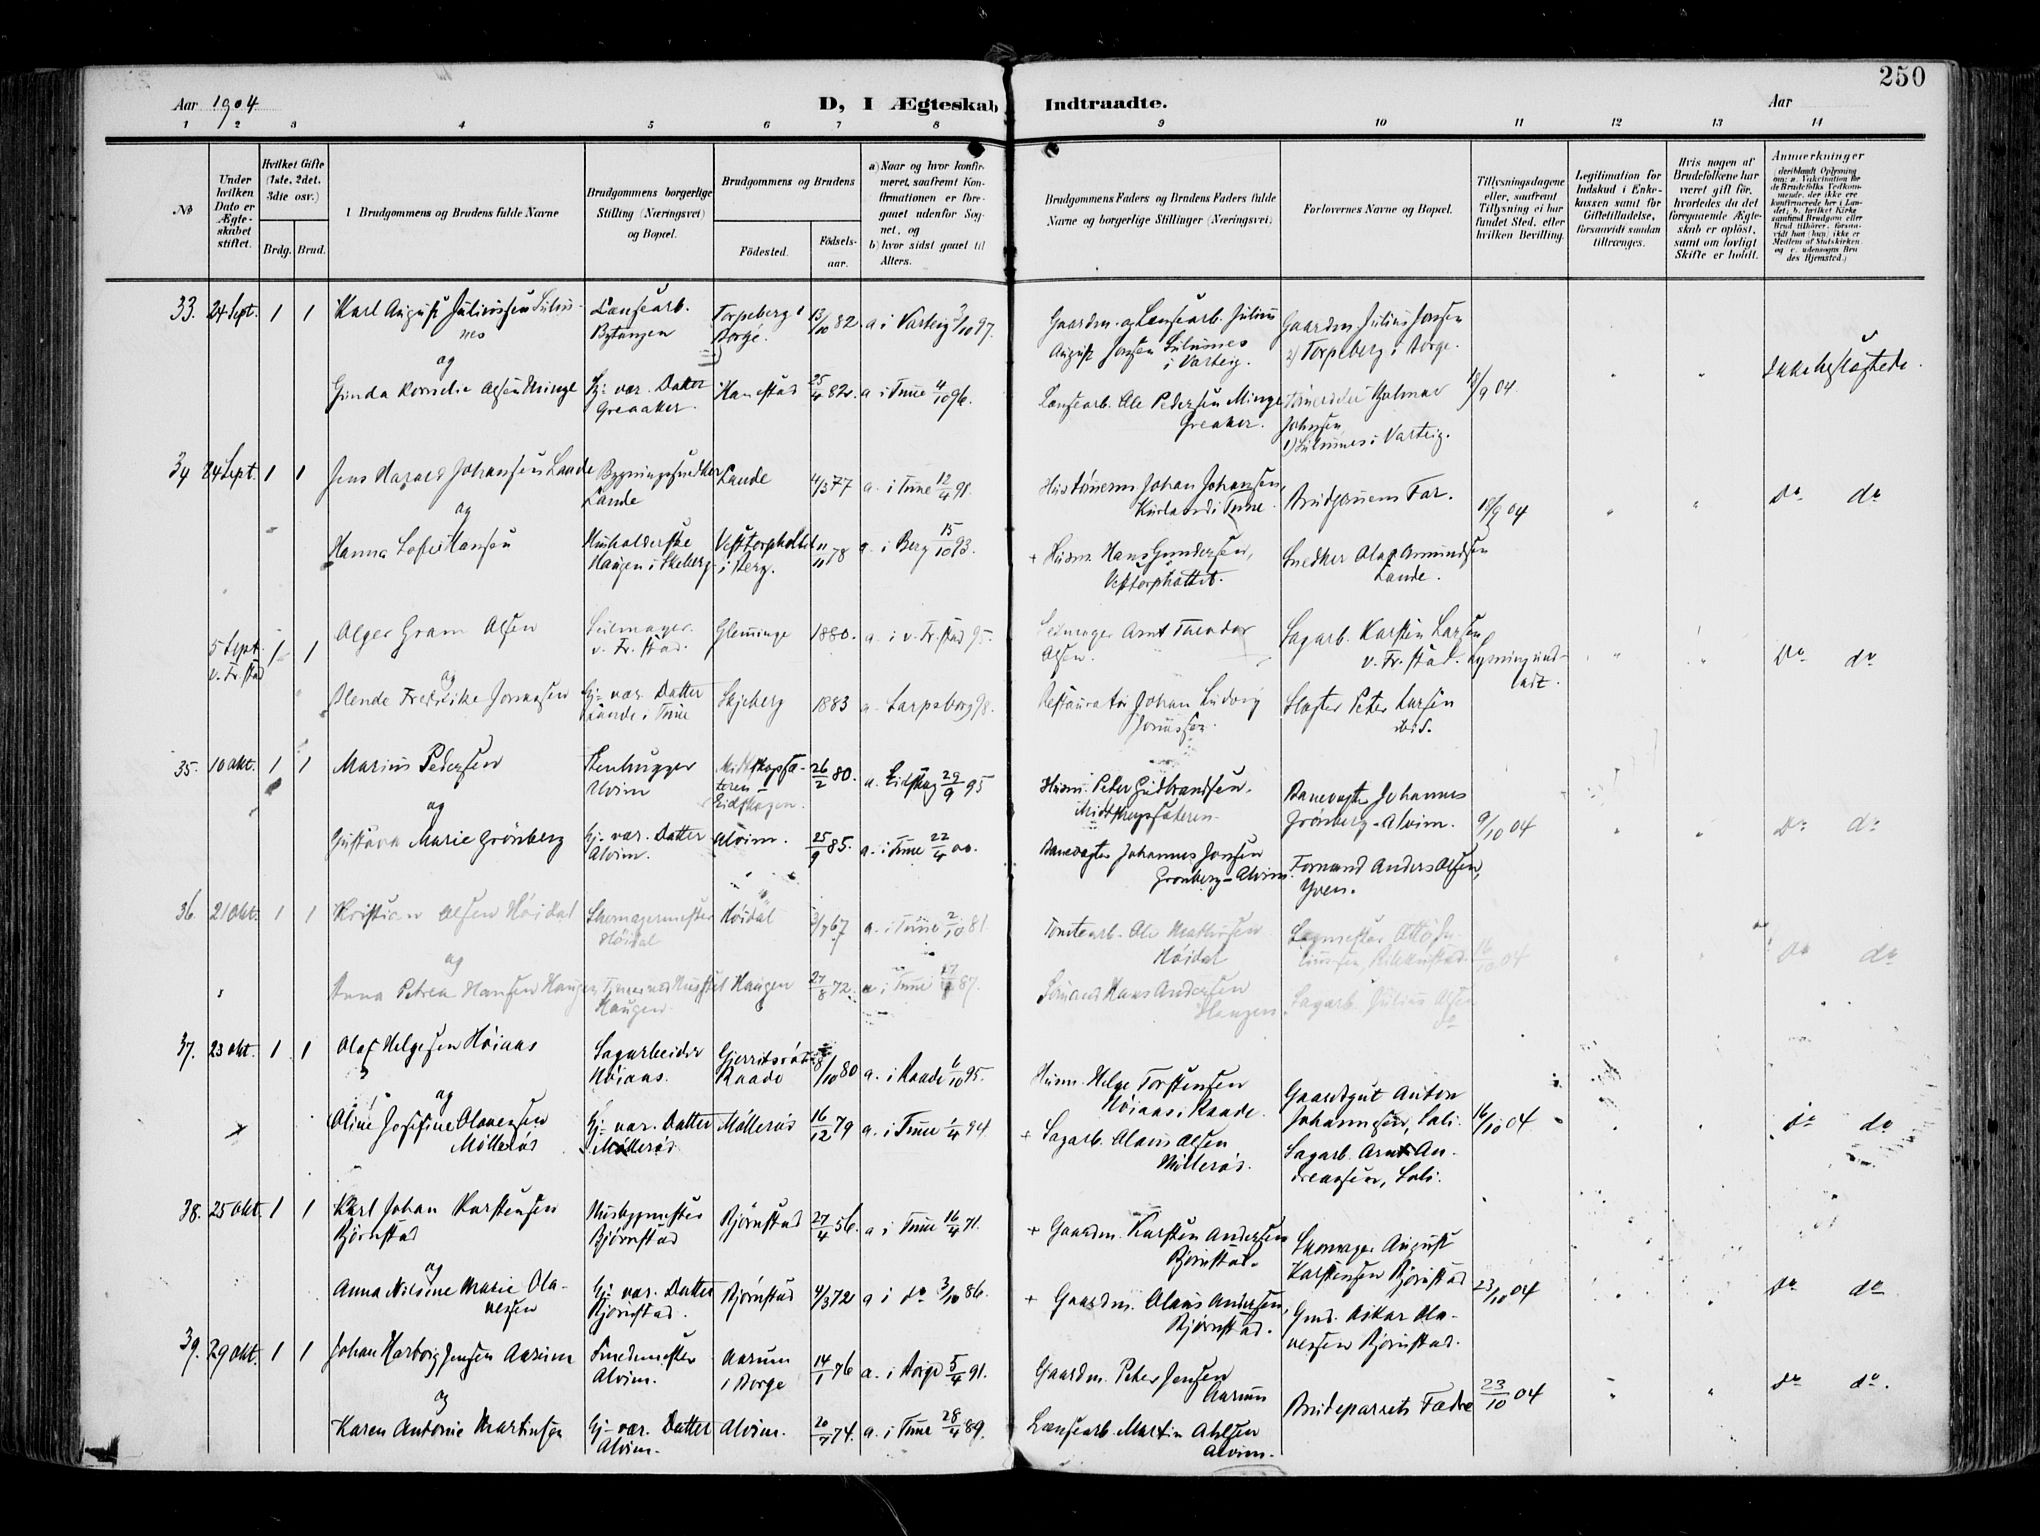 250
Aar 1904
D, I Ægteskab Indtraadte.
Aar
1 2 3 4 5 6 7 8 9 10 11 12 13 14
No
Under hvilken Dato er Ægteskabet stiftet.
Hvilket Gifte (1ste, 2det, 3die osv.)
Brdg. Brud.
Brudgommens og Brudens fulde Navne
Brudgommens borgerlige Stilling (Næringsvei) og Bopæl.
Brudgommens og Brudens
Fødested.
Fødselsaar.
a) Naar og hvor konfirmeret, saafremt Konfirmationen er foregaaet udenfor Sognet, og
b) hvor sidst gaaet til Alters.
Brudgommens Faders og Brudens Faders fulde Navne og borgerlige Stillinger (Næringsvei)
Forlovernes Navne og Bopæl.
Tillysningsdagene eller, saafremt Tillysning ei har fundet Sted, efter hvilken Bevilling.
Legitimation for Indskud i Enkekassen samt for Giftetilladelse, forsaavidt saadan tiltrænges.
Hvis nogen af Brudefolkene har været gift før, hvorledes da det foregaaende Ægteskab er opløst, samt om lovligt Skifte er holdt.
Anmerkninger
33. 24 Sept. 1 1 Karl August Juliussen
og
Gunda Kornelie Olsen Minge
Lænsearb.
Torpeberg i Borge.
13/10 82 a i Varteig 3/10 97.
Gaardm. og Lænsearb. Julius
August Jonsen
i Varteig.
Gaardm. Julius Jonsen
2) Torpeberg i Borge.
Gj. vær. Datter
Greaaker.
Hanestad 25/4 82. a i Tune 4/10 96.
Lænsearb. Ole Pedersen Minge
Greaker.
Hjalmar
Johnsen
i Varteig.
18/9 04
Ikke beslægtede.
34 24 Sept. 1 1 Jens Harald Johansen Lande
og
Hanna Hansen
Bygningssnedker
Lande
Lande 4/3 77 a. i Tune 12/4 91.
Johan Johansen,
i Tune
Brudgommens Far.
18/9 04
do do
Husholderske
Haugen i Skeberg
i Berg. 11/11 78 a. i Berg 15/10 93.
+ Husm. Hans Gundersen,
Snedker Olaf Amundsen
Lande.
5 Sept. v. Fr.stad 1 1
Alger Gram Olsen
og
Fredrikke
Seilmager.
v. Fr.stad.
Glemminge 1880. a. i v. Fr.stad 95.
Arnt Theodor
Olsen.
Sagarb. Karsten Larsen
v. Fr.stad.
do do
Gj. vær. Datter
Lande i Tune
Skjeberg 1883 a. Sarpsborg 98.
Restauratør Johan Ludvig
Slagter Peter Larsen
ibid.
35. 10 Okt. 1 1 Marius Pedersen
og
Gustava Marie Grönberg
Stenhugger
Alvim
26/2 80. a. Eidskog 29/9 95
Husm. Peter Gudbrandsen,
Banevogter Johannes
Grønberg - Alvim.
9/10 04
do do
Gj. vær. Datter
Alvim.
Alvim. 25/9 85. a. i Tune 22/4 00.
Banevogter Johannes Jonsen
Grønberg - Alvim.
Formand Anders Olsen,
Yven.
36. 21 Okt. 1 1 Kristian Olsen Höidal
og
Anna Petrea Hansen Haugen
Skomagermester
Höidal
Höidal 3/7 67 a. i Tune 2/10 81.
Tomtearb. Ole Mathisen
Höidal
16/10 04
do do
Haugen.
Haugen 27/8 72. a i Tune 87.
Hans Andersen
Haugen
Sagarb. Julius Olsen
do
37. 23 Okt. 1 1 Olaf Helgesen Höiaas
og
Oline Josefine Olavesen
Möllerød
Sagarbeider
Höiaas.
Raade
8/10 80 a. i Raade 6/10 95.
Husm. Helge Torstensen
Höiaas i Raade.
Gaardsgut Anton
Johannesen, Soli.
16/10 04
do do
Gj. vær. Datter
Möllerød
Möllerød 16/12 79 a. i Tune 1/4 94.
+ Sagarb. Olaus Olsen
Möllerød.
Sagarb. Arnt Andreassen, Soli.
38. 25 Okt. 1 1 Karl Johan Karstensen
Bjørnstad
og
Anna Nilsine Marie Olavesen
Husbygmester
Bjørnstad
Bjørnstad 27/4 56. a i Tune 16/4 71.
+ Gaardm. Karsten Andersen
Bjørnstad.
Skomager August
Karstensen Bjørnstad
23/10 04
do do.
Gj. vær. Datter
Bjørnstad.
Bjørnstad 4/3 72 a i do 3/10 86.
+ Gaardm. Olaus Andersen,
Bjørnstad.
Gmd. Oskar Olavessen Bjørnstad.
39. 29 Okt. 1 1 Johan Hartvig Jensen Aarum
og
Karen Antonie Martinsen
Smedemester
Alvim.
Aarum
i Borge
14/1 76 a. i Borge 5/4 91.
Gaardm. Peter Jensen
Aarum
Brudeparrets Fædre
23/10 04
do do.
Gj. vær. Datter
Alvim.
Alvim. 20/7 74. a. i Tune 28/4 89.
Lænsearb. Martin Ahlsen
Alvim.